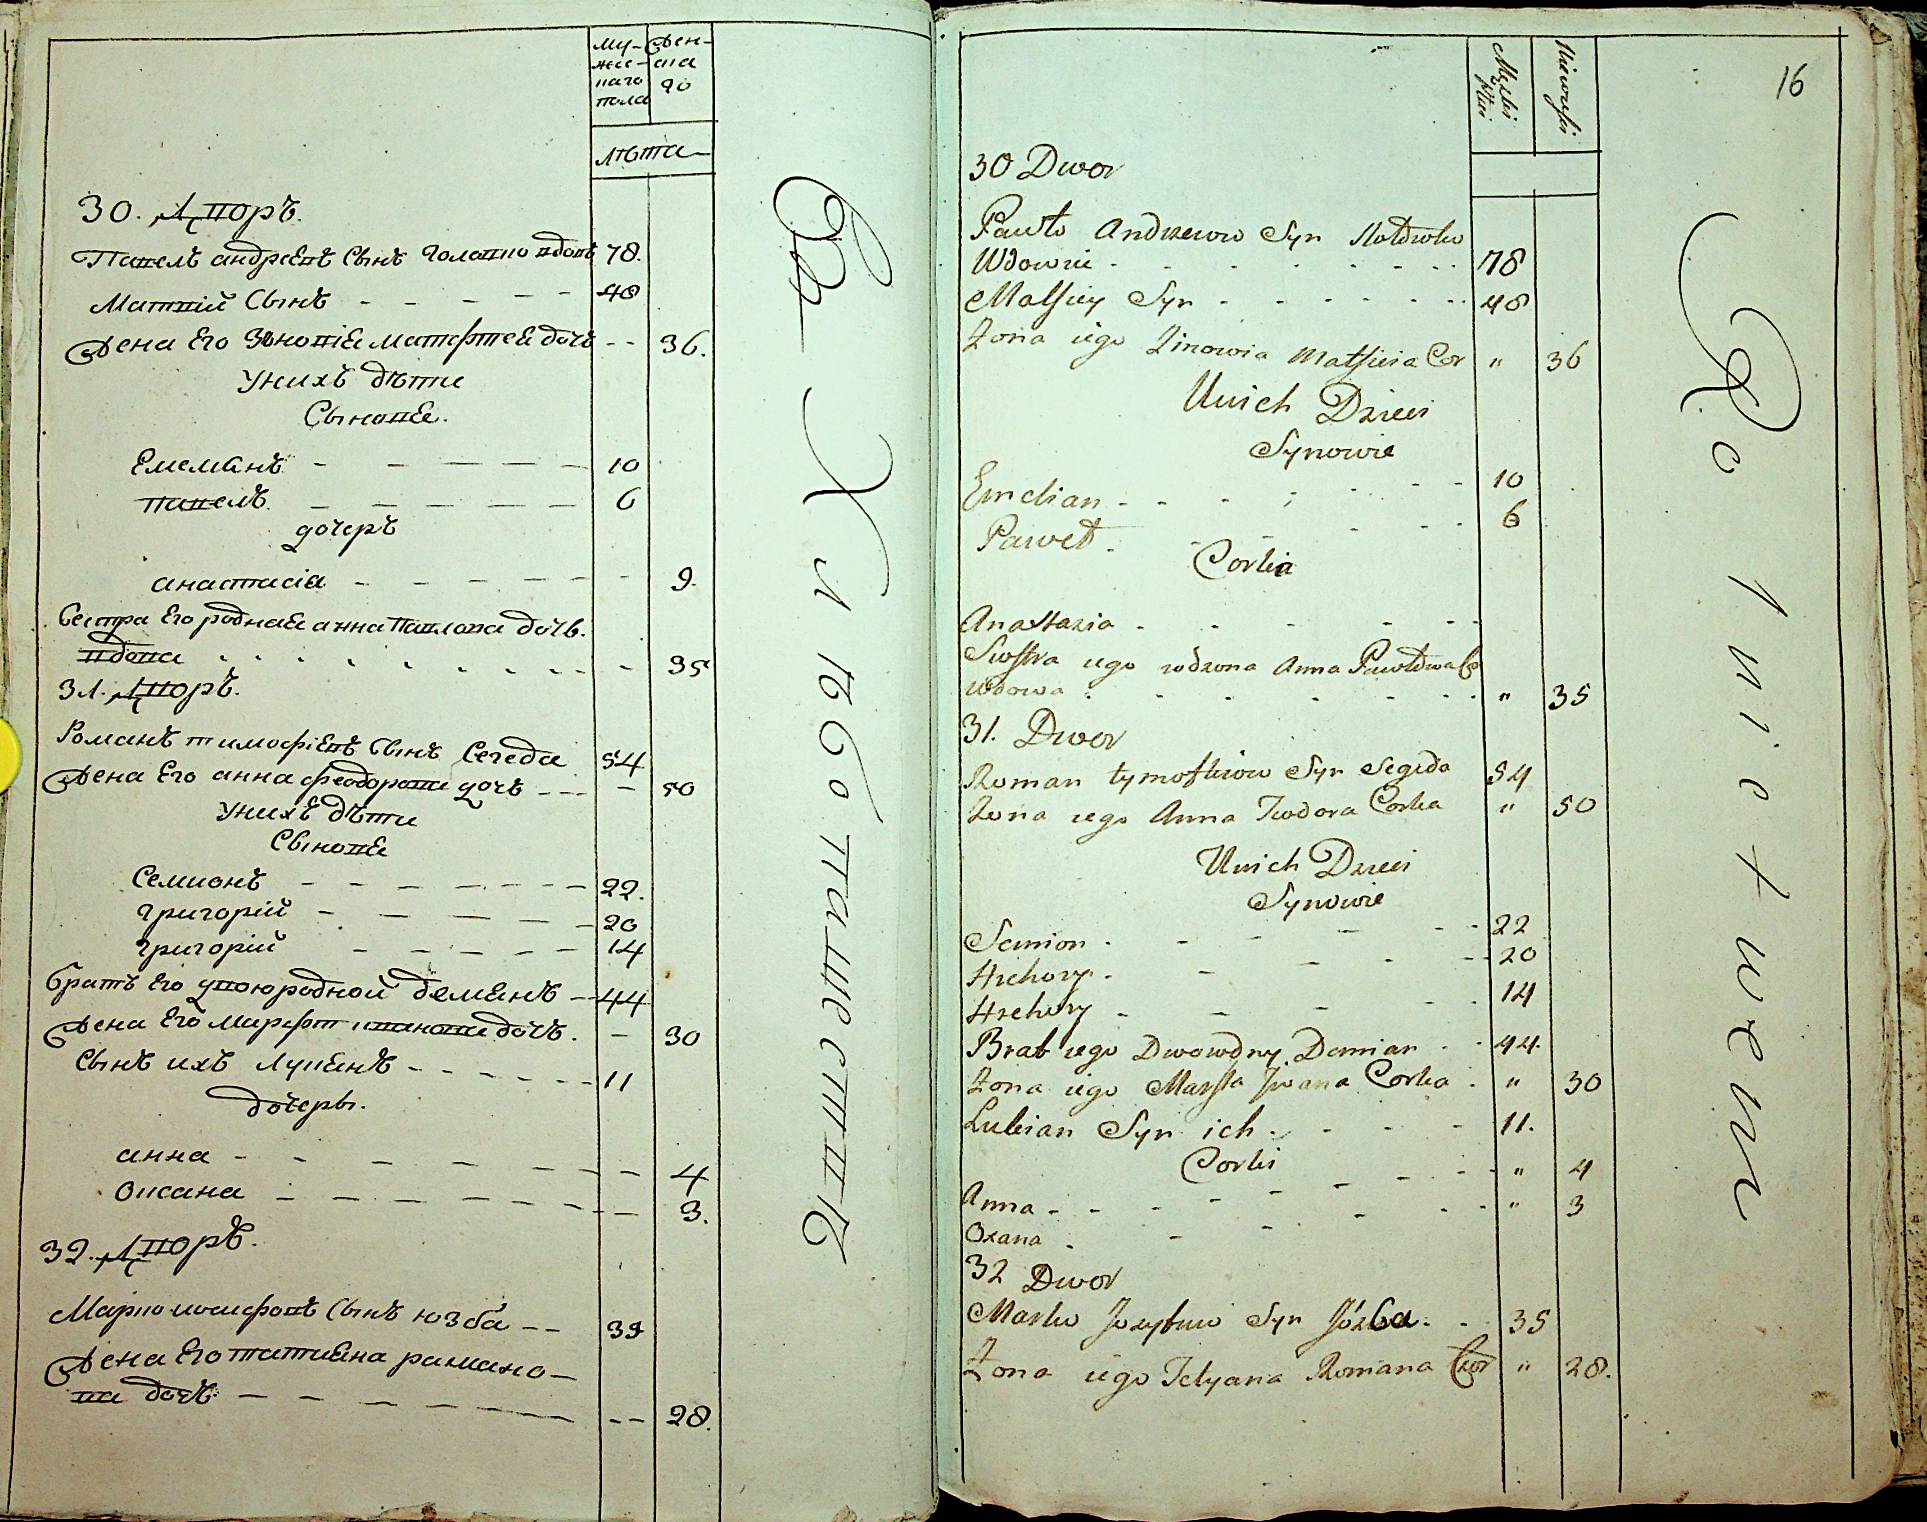 Му-
жес-
каго
пола
Жен-
ска
го
лѣта
30. Дворъ.
Павелъ андреевъ Сынъ Головко вдовъ 78.
Матвій Сынъ 48
Жена Его Зѣновіа матфтеа дочь 36.
Унихъ дѣти
Сынове.
Емелианъ 10
павелъ 6
дочеръ
анастасіа 9.
Сестра Его роднаа анна Павлова дочь.
вдова 35
31. Дворъ.
Романъ тимофіевъ Сынъ Сегеда 54
Жена Его анна феодорова дочь 50
Унихъ дѣти
Сынове
Семионъ 22.
григорій 20
григорій 14
братъ Его двоюродной демианъ 44
Жена Его Марфа иванова дочь. 30
Сынъ ихъ Лукианъ 11
дочеры.
анна 4
Оксана 3.
32. Дворъ.
Марко иосифовъ Сынъ юзба 35
Жена Его татиана рамано-
ва дочь 28.
16
Męzkiey płci
Niewieści
30 Dwor
Pawło Andrzeiow Syn Hołowko
Wdowiec 78
Matfiey Syn 48
Żona iego Zinowia Matfieia Cor " 36
Unich Dzieci
Synowie
Emelian 10
Paweł 6
Corka
Anastazia
Siostra iego rodzona Anna Pawłowa Co
wdowa " 35
31. Dwor
Roman tymofiiow Syn Segida 54
Zona iego Anna Teodora Corka " 50
Unich Dzieci
Synowie
Semion 22
Hrehory 20
Hrehory 14
Brat iego Dwowdny Demian 44.
Żona iego Marfta Jwana Corka " 30
Lukian Syn ich 11.
Corki " 4
Anna " 3
Oxana
32 Dwor
Marko Jozyfow Syn Józba 35
Żona iego Tetyana Romana Cor " 28.